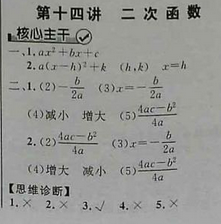 第十四讲 二次函数
核心主干
一、1.ax²+bx+c
2.a(x-h)²+k (h,k) x=h
二、1.(2)-b/2a (3)x=-b/2a
(4)减小 增大 (5)4ac-b²/4a
2.(2)4ac-b²/4a (3)x=-b/2a
(4)增大 减小 (5)4ac-b²/4a
【思维诊断】
1.× 2.× 3.√ 4.× 5.×